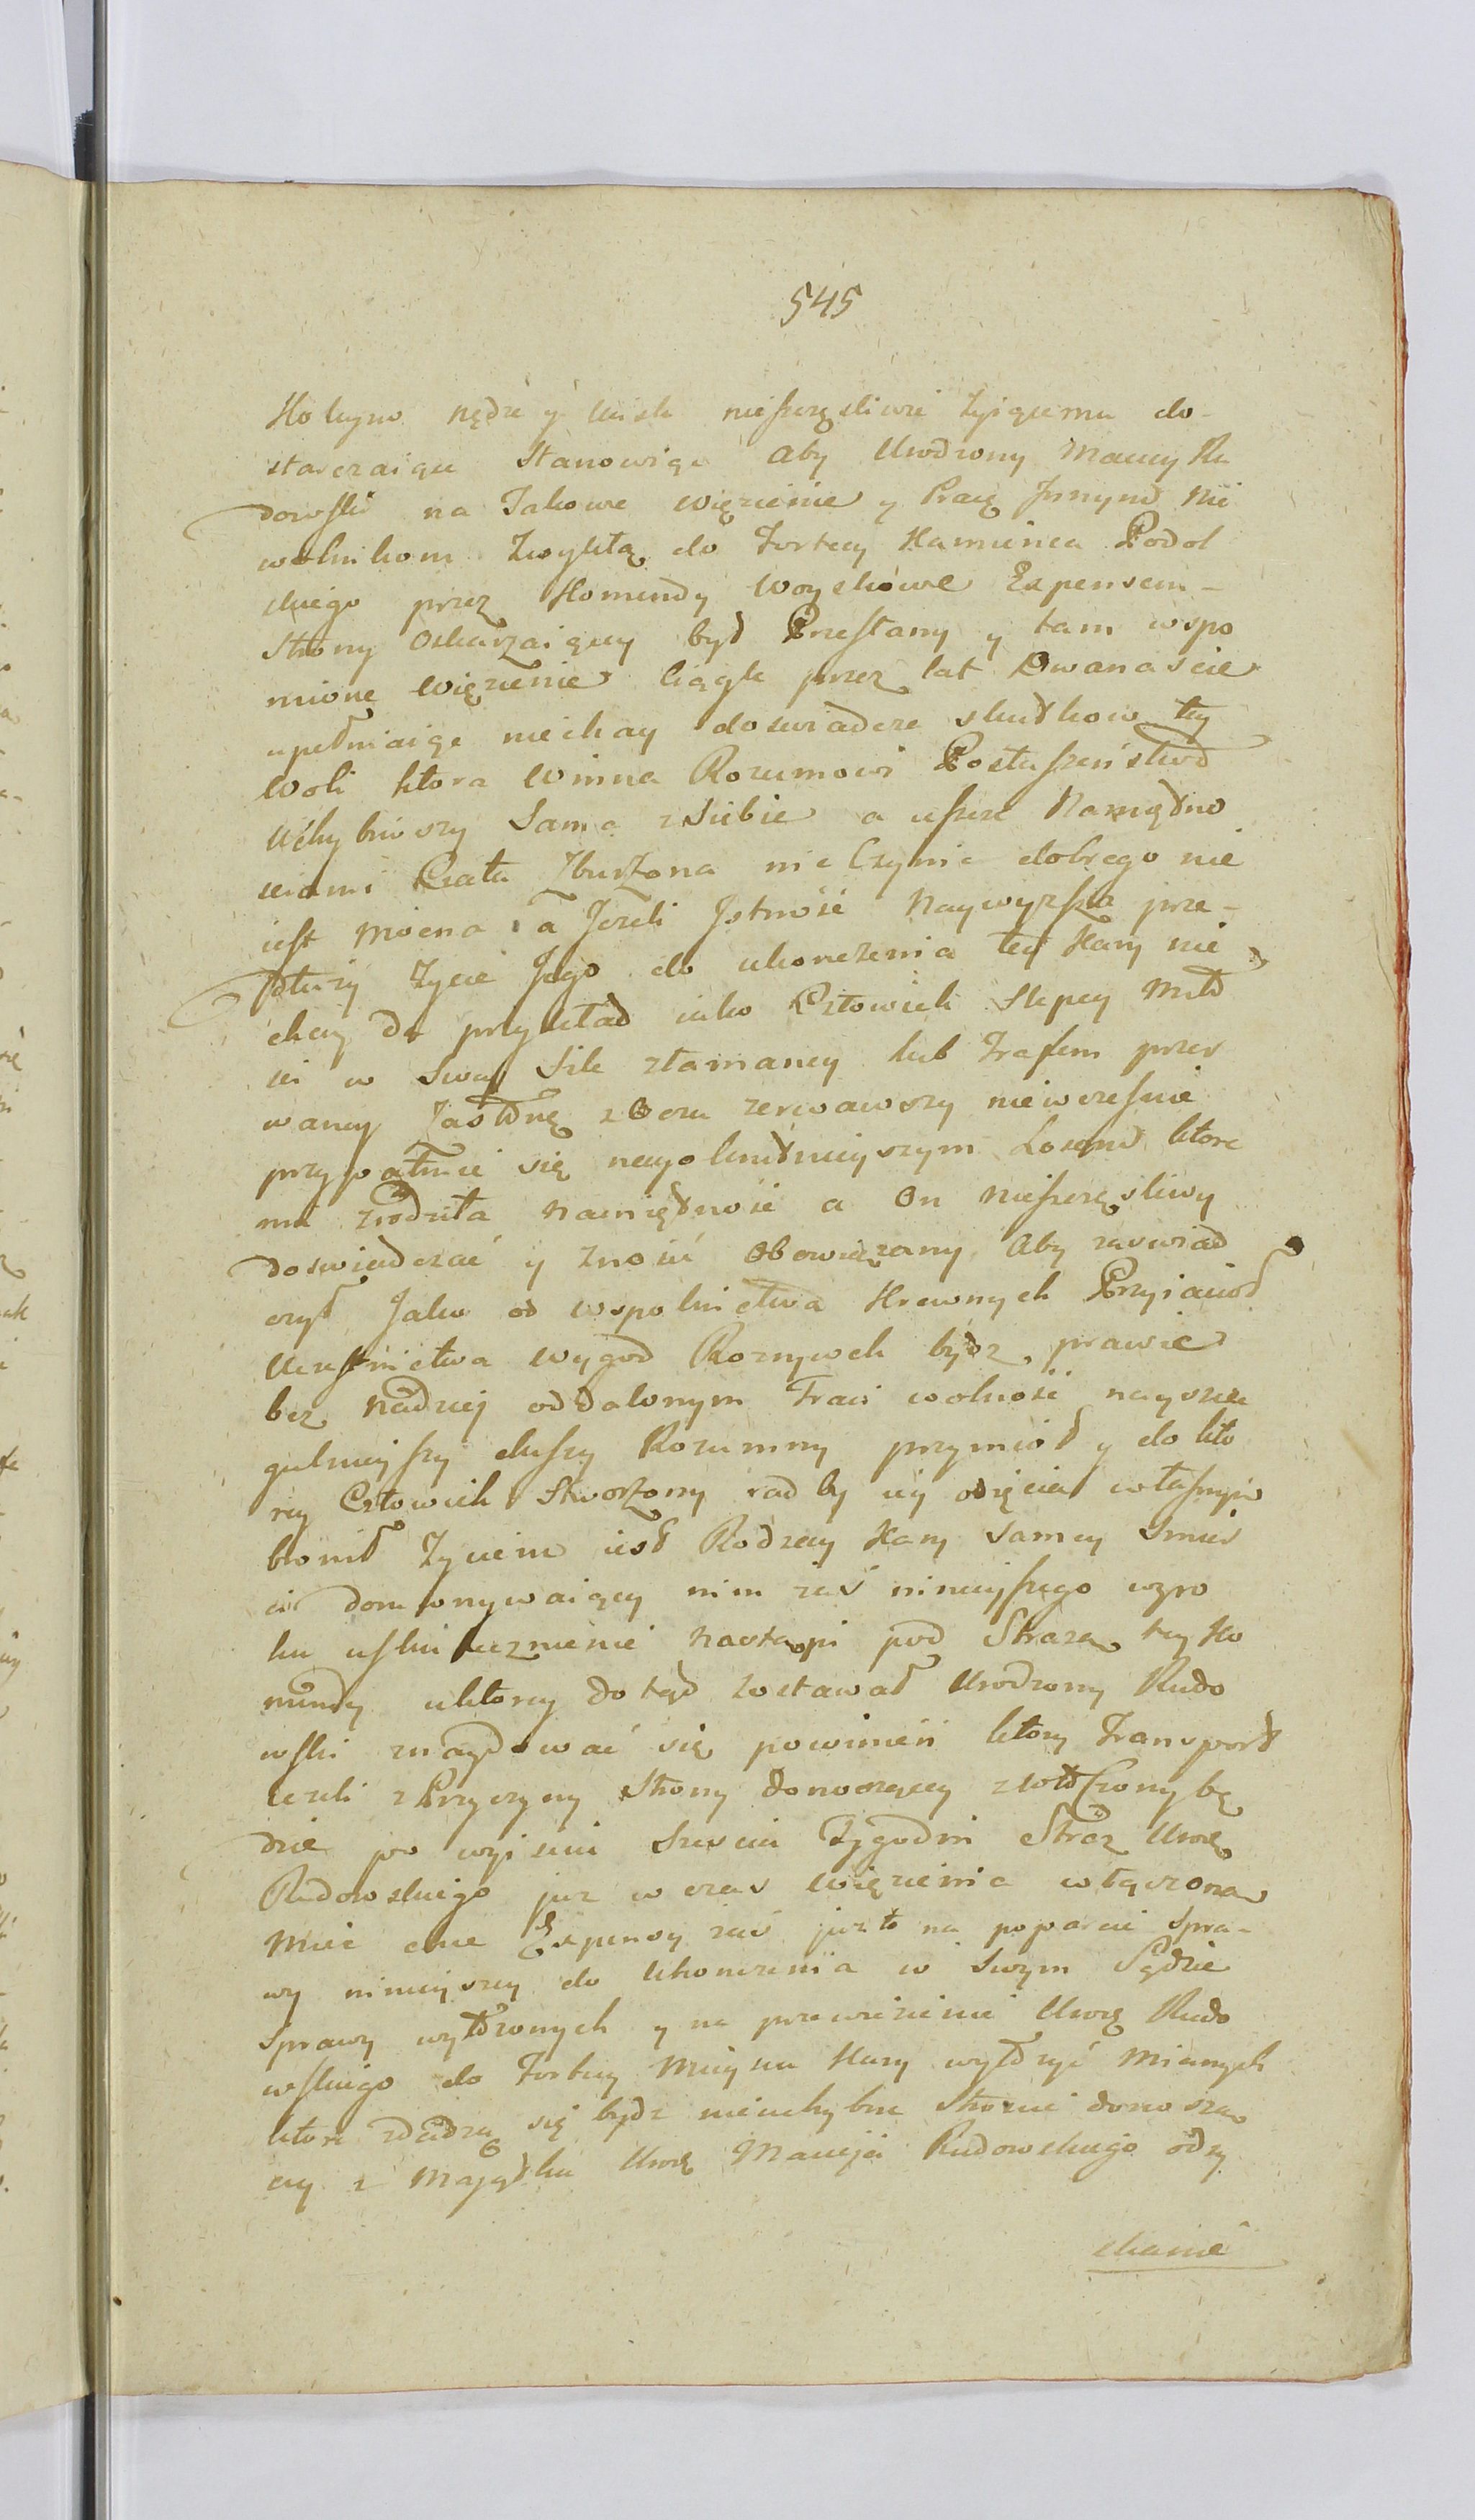 545
Kolwyw nędzę y Ucisk nieszczęśliwie żyiącemu do-
starczaiące Stanowiąc aby Urodzony Maciey Ru
dowski na Takowe więzienie y Pracę Innym Nie
wolnikom Zwykłą do Fortecy Kamieńca Podol
skiego przez Komendy woyskowe Expensem-
Strony Oskarzaiącey był Przesłany y tam wspo
mione Więzienie Ciągle przez lat Dwanaście
upełniaiąc niechay doswiadcza skutkow tey
Woli ktora Winna Rozumowi Posłuszeństwo
Uchybiwszy Sama z Siebie a ieszcze Namiętno
sciami Ciała Zburzona nic Czynic dobrego nie
iest Mocna, a Jezeli Jstność Naywyższa prze-
dłuży Zycie Jego do ukonczenia tey Kary nie
chay da przykład iako Człowiek Slepey Miło
sci w Swey Sile złamaney lub Trafem przer
waney Zasłonę z Oczu zerwawszy niewczesnie
przypatruie się nayokrutnieyszym Losem ktore
mu zrodziła Namiętność a On Nieszczęsliwy
doswiadczać y Znosić Obowiązany, Aby zaswiad
czył Jako od wspolnictwa Krewnych Przyiacioł
Uczestnictwa Wygod Roznych bydz prawie
bez Nadziej oddalonym Traci wolność nayszcze
gulnieyszy duszy Rozumny przymiot y do kto
rey Człowiek Stworzony rad by iey odięcia własnym
bronił Zyciem iest Rodzay Kary Samey Smier
ci dorownywaiącey nim zaś ninieyszego wyro
ku uskutecznienie Nastąpi pod Strażą tey Ko
mendy uktorey dotąd zostawał Urodzony Rudo
wski znaydować się powinien ktory Transport
Jezeli z Przyczyny Strony donoszącey zwłoczony bę
dzie po wyisciu Szesciu Tygodni Straż Urodz
Rudowskiego już w czas Więzienia włączona
Mieć chce Expensy zaś już to na poparcie Spra-
wy ninieyszey do Ukonczenia w Swym Sądzie
Sprawy wyłożonych y na przewiezienie Urodz Rudo
wskiego do Fortecy Mieysca Kary wyłożyć Mianych
ktore zdadzą się bydz nieuchybne Stronie donoszą
cey z Majątku Urodz Macieja Rudowskiego odzy
skanie